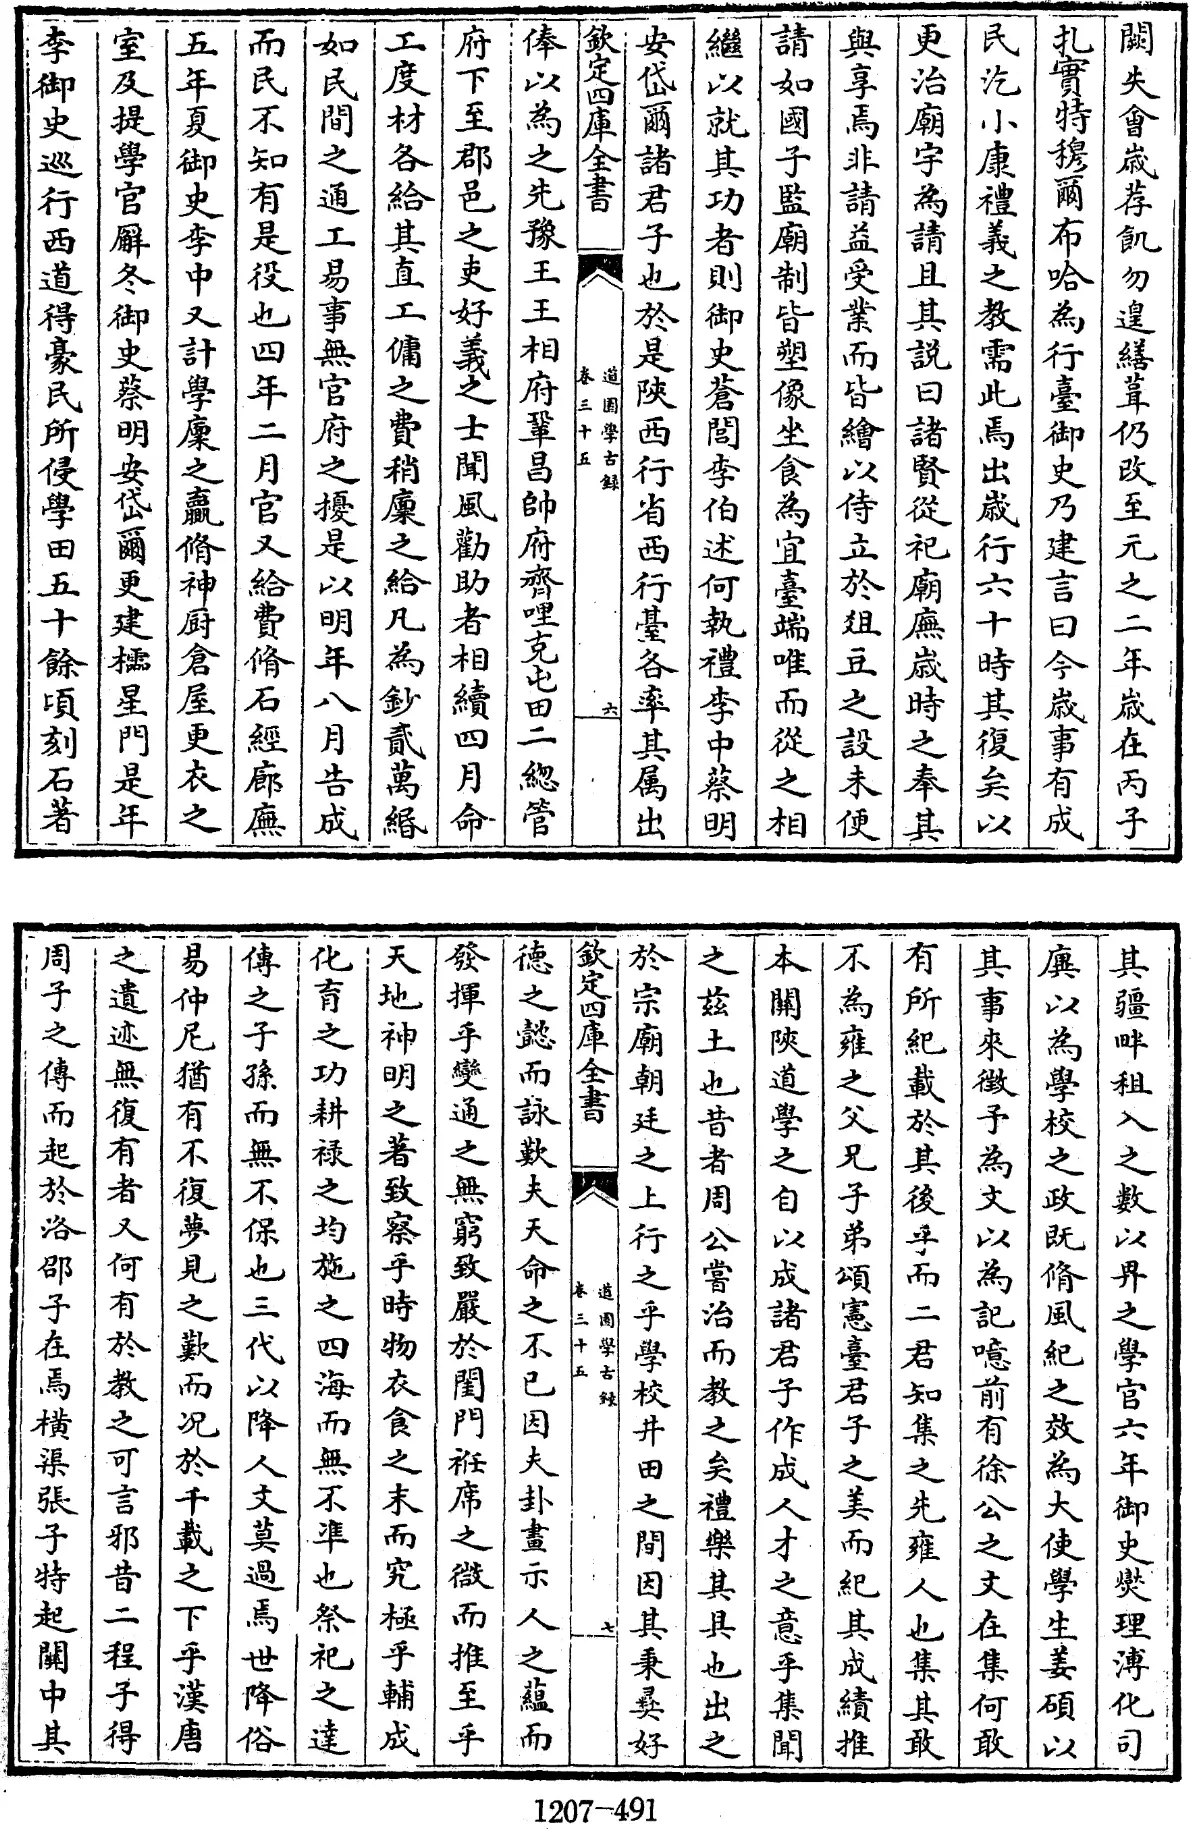 闕失會歳荐飢勿遑繕葺仍改至元之二年歳在丙子
扎實特穆爾布哈為行臺御史乃建言曰今歳事有成
民汔小康禮義之教需此焉出歳行六十時其復矣以
更治廟宇為請且其説曰諸賢從祀廟廡歳時之奉其
與享焉非請益受業而皆繪以侍立於俎豆之設未便
請如國子監廟制皆塑像坐食為宜臺端唯而從之相
繼以就其功者則御史蒼閭李伯述何執禮李中蔡明
安岱爾諸君子也於是陜西行省西行臺各率其属出
欽定四庫全書
道園學古録
卷三十五
六
俸以為之先豫王王相府鞏昌帥府齊哩克屯田二總管
府下至郡邑之吏好義之士聞風勸助者相續四月命
工度材各給其直工傭之費稍廩之給凡為鈔貳萬緡
如民間之通工易事無官府之擾是以明年八月告成
而民不知有是役也四年二月官又給費脩石經廊廡
五年夏御史李中又計學廩之贏脩神厨倉屋更衣之
室及提學官廨冬御史蔡明安岱爾更建櫺星門是年
李御史巡行西道得豪民所侵學田五十餘頃刻石著
其疆畔租入之數以畀之學官六年御史爕理溥化司
廙以為學校之政既脩風紀之效為大使學生姜碩以
其事來徵予為文以為記噫前有徐公之文在集何敢
有所紀載於其後乎而二君知集之先雍人也集其敢
不為雍之父兄子弟頌憲臺君子之美而紀其成績推
本關陜道學之自以成諸君子作成人才之意乎集聞
之兹土也昔者周公嘗治而教之矣禮樂其具也出之
於宗廟朝廷之上行之乎學校井田之間因其秉彛好
欽定四庫全書
道園學古録
卷三十五
七
德之懿而詠歎夫天命之不已因夫卦畫示人之藴而
發揮乎變通之無窮致嚴於閨門袵席之微而推至乎
天地神明之著致察乎時物衣食之末而究極乎輔成
化育之功耕禄之均施之四海而無不凖也祭祀之達
傳之子孫而無不保也三代以降人文莫過焉世降俗
易仲尼猶有不復夢見之歎而况於千載之下乎漢唐
之遺迹無復有者又何有於教之可言邪昔二程子得
周子之傳而起於洛邵子在焉横渠張子特起關中其
1207-491